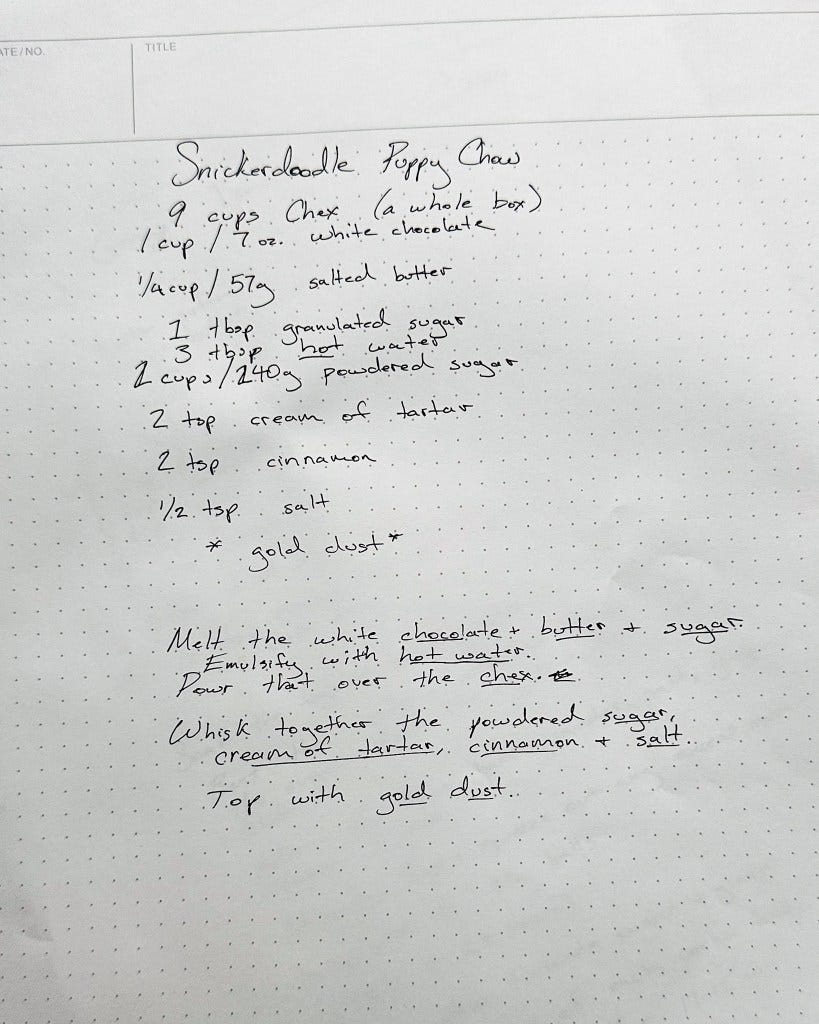 ATE/NO.
TITLE
Snickerdoodle Puppy Chow
9 cups Chex (a whole box)
1 cup / 7 oz. white chocolate
1/4 cup / 57g salted butter
1 tbsp granulated sugar
3 tbsp hot water
2 cups / 240g powdered sugar
2 tsp cream of tartar
2 tsp cinnamon
1/2 tsp salt
* gold dust *
Melt the white chocolate + butter + sugar.
Emulsify with hot water.
Pour that over the chex.
Whisk together the powdered sugar,
cream of tartar, cinnamon + salt.
Top with gold dust.